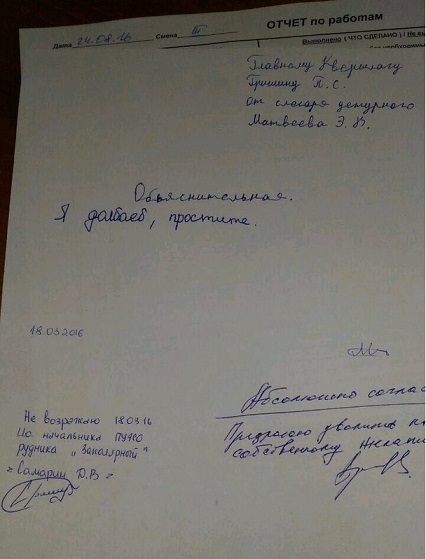 ОТЧЕТ по работам
Дата 24.08.16 Смена III
Выполнено ( ЧТО СДЕЛАНО ) / Не вы
без необходимы
Главному Квершлагу
Гришину П.С.
от слесаря дежурного
Матвеева Э.В.
Объяснительная.
Я долбаеб, простите.
18.03.2016
Абсолютно соглас
Не возражаю 18.03.16
И.о. начальника
рудника "Заполярный"
Самарин Д.В
Предлагаю уволить по
собственному желани